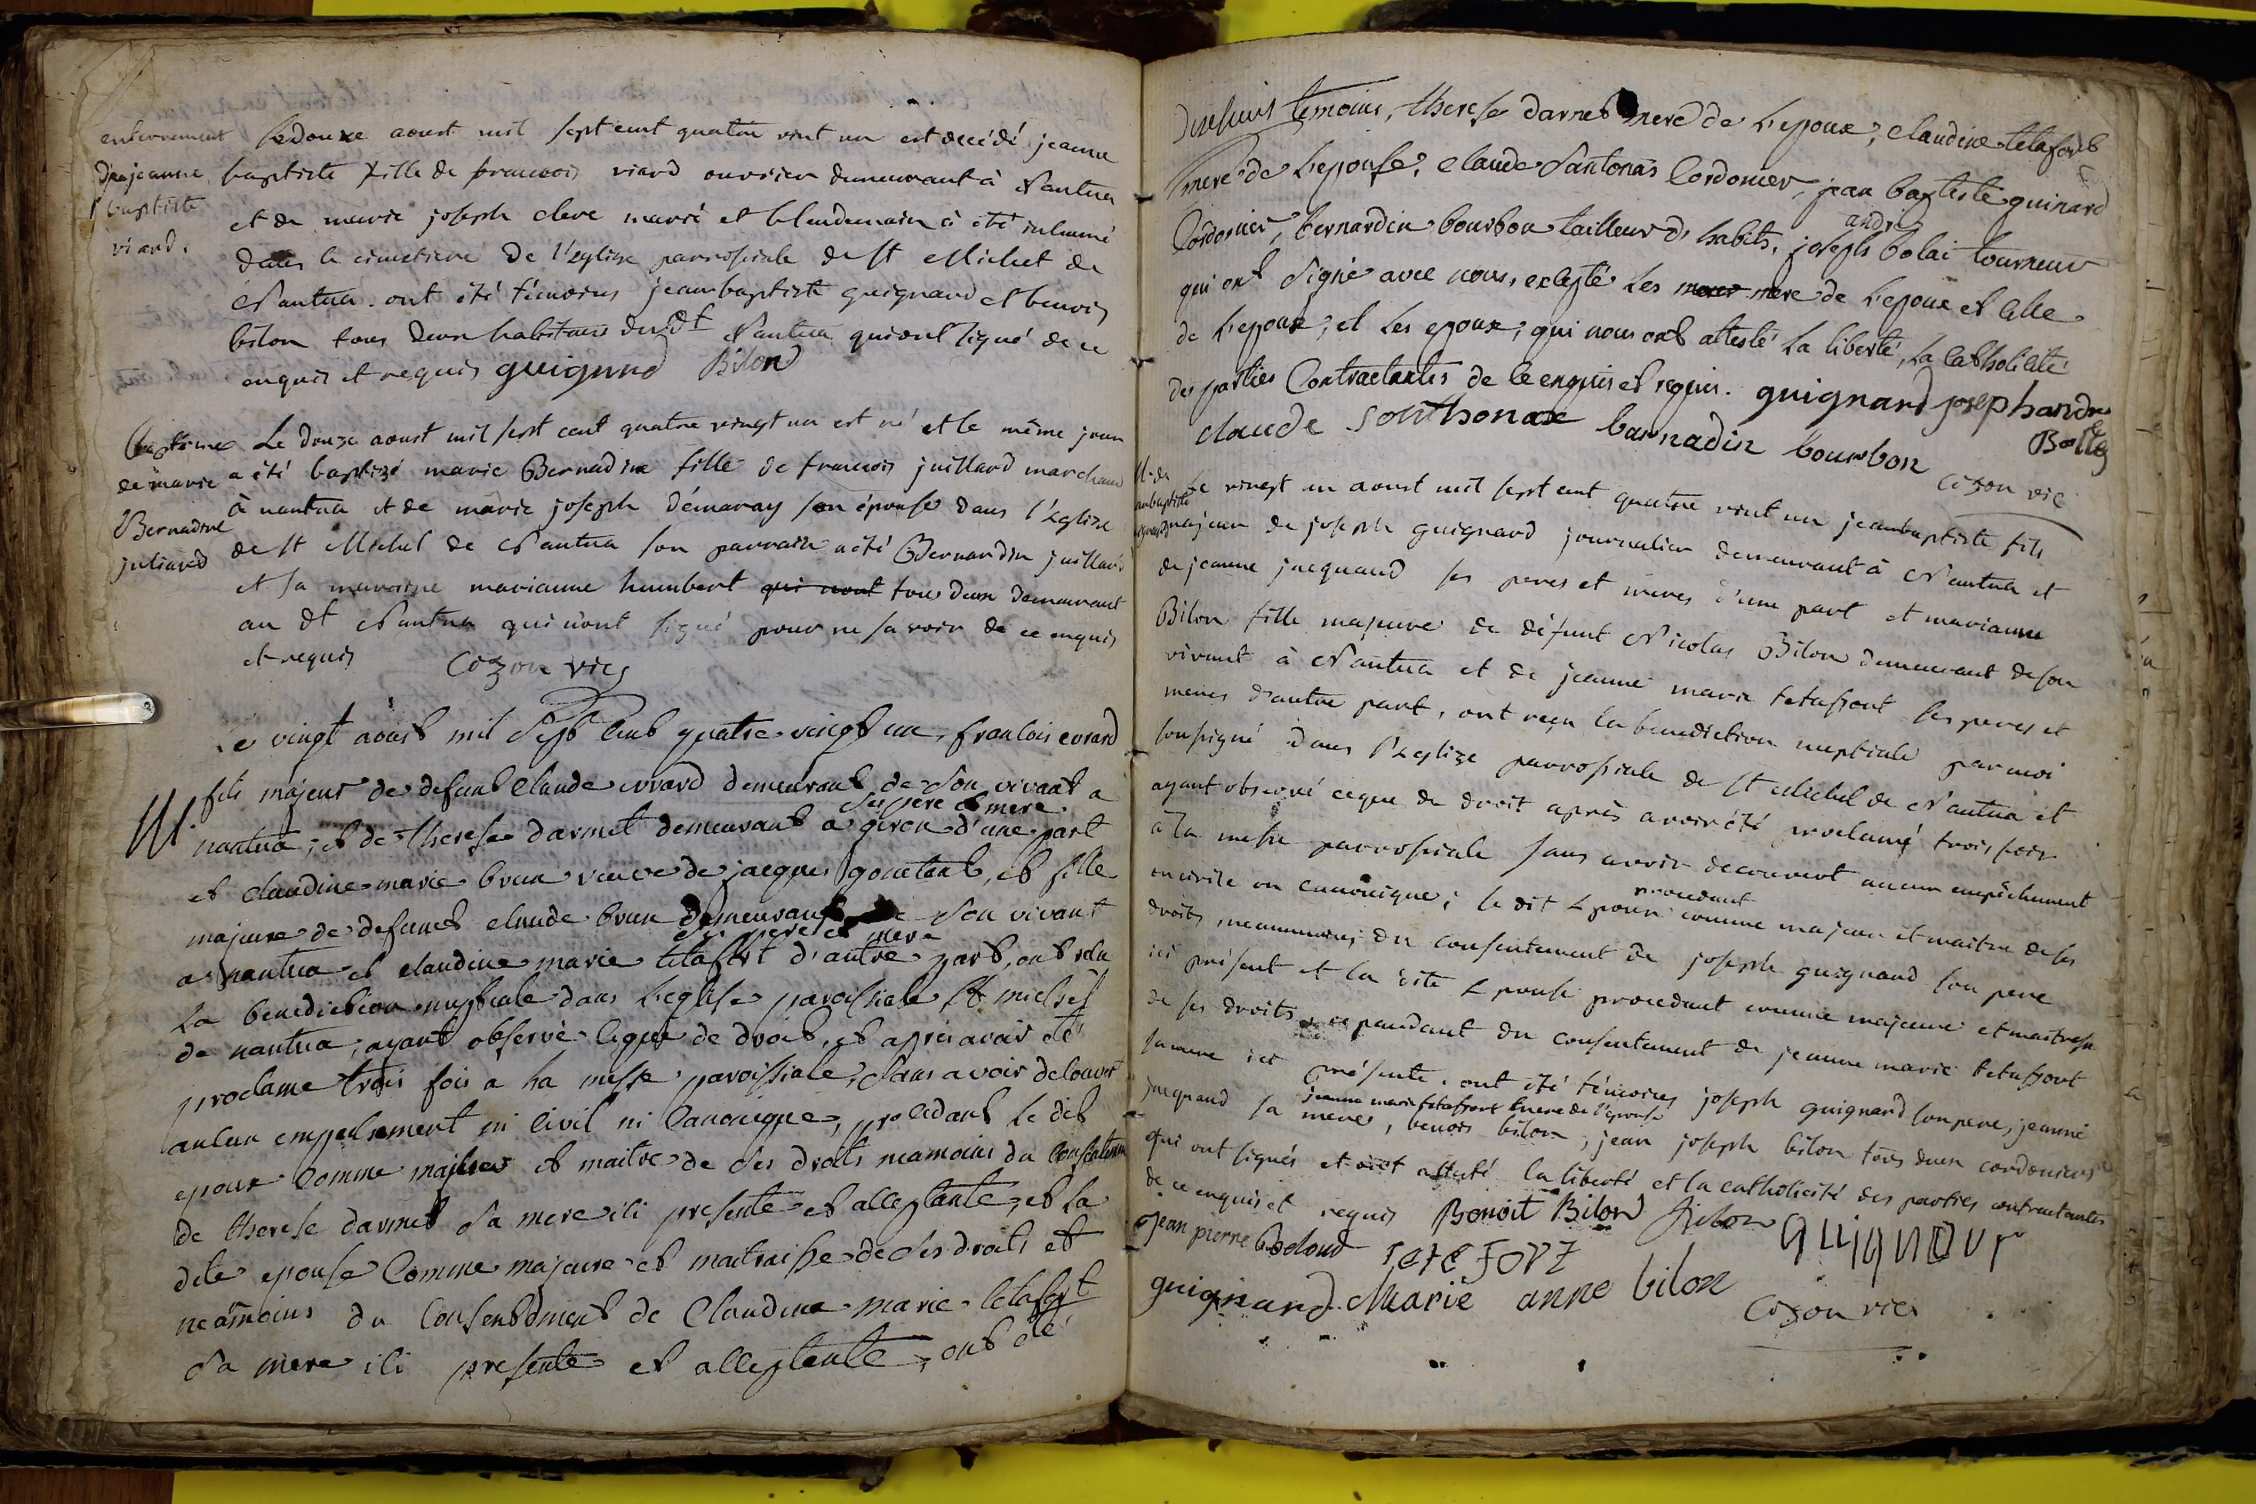 enterrement
de jeanne
baptiste
viard.
Le douze aoust mil sept cent quatre vint un est decédé jeanne
baptiste fille de francois viard ouvrier demeurant à Nantua
et de marie joseph cleve marié et le lendemain à été inhumé
dans le cimetiere de l'Eglize parrossiale de St Michel de
Nantua. ont été témoins jeanbaptiste guignard et benois
bilon tous deux habitans dudt Nantua qui ont signé de ce
enquis et requis guignard Bilond
Baptême
de marie
Bernadine
juliard
Le douze aoust mil sept cent quatre vingt un est né et le même jour
a été baptizé marie Bernadine fille de francois juillard marchand
à nantua et de marie joseph démaray son épouse dans l'Eglize
de St Michel de Nantua son parrain a été Bernardin juillard
et sa marraine marianne humbert qui nont tous deux demeurant
au dt Nantua qui n'ont signé pour ne savoir de ce enquis
et requis Cozon vic
M.
Le vingt aoust mil Sept Cent quatre-vingt un, francois evrard
fils majeur de defunt Claude evrard demeurant de Son vivant a
Ses pere et mere
nantua, et de therese darmet demeurant a giron d'une part
et Claudine marie brun veuve de jacques goutant, et fille
majeure de defunct claude brun demeurant de Son vivant
Ses pere et mere
a nantua et claudine marie tetafort d'autre part, ont recu
La benediction nuptiale dans L'eglise paroissiale St michel
de nantua, ayant observé ceque de droit, et apres avoir eté
proclame trois fois a La messe paroissiale, Sans avoir decouvert
aucun empechement ni Civil ni Canonique, procedant le dit
epoux Comme majeur et maitre de Ses droits neamoins du Consentement
de therese darmet Sa mere ici presente et acceptante, et La
dite epouse Comme majeure et maitraisse de Ses droits et
neamoins du Consentement de Claudine marie tetafort
Sa mere ici presente et acceptante, ont eté
temoins, therese darmet mere de L'epoux, claudine tetafort
mere de L'epouse, claude Santonas Cordonier, jean baptiste guinard
Cordonier, bernardin bourbon tailleur d'habits, joseph andré bolai tourneur
qui ont Signé avec nous, excepté Les mere de L'epoux et Celle
de L'epoux, et Les epoux, qui nous ont attesté La liberté, La Catholicité
des parties Contractantes de Ce enquis et requis. guignard joseph handre
claude Sonthonax barnadin bourbon Bolley
Cozon vic
M. de
Le vingt un aoust mil sept cent quatre vint un jeanbaptiste fils
majeur de joseph guignard journalier demeurant à Nantua et
de jeanne jacquand ses peres et meres d'une part et marianne
Bilon fille majeure de défunt Nicolas Bilon demeurant de son
vivant à Nantua et de jeanne marie tetafort ses peres et
meres d'autre part, ont reçu la benediction nuptiale par moi
soussigné dans l'Eglize parrossiale de St Michel de Nantua et
ayant observé ceque de droit après avoir été proclamé trois fois
à la messe parrossiale sans avoir decouvert aucun empêchement
procedant
ni civile ni canonique; le dit Epoux comme majeur et maitre de ses
droits, neammoins du consentement de joseph guignard son pere
ici présent et la dite Epouse procedant comme majeure et maitresse
de ses droits cependant du consentement de jeanne marie tetafsort
sa mere ici présente. ont été témoins joseph guignard son pere, jeanne
jeanne marie tetafsort mere de l'épouse
jacquand sa mere, benois bilon, jean joseph bilon tous deux cordoniers
qui ont signés et ont attesté la liberté et la catholicité des parties contractantes
de ce enquis et requis Benoit Bilon Bilon guignour
jean pierre Bolond tetefort
guignard Marie anne bilon Cozon vic